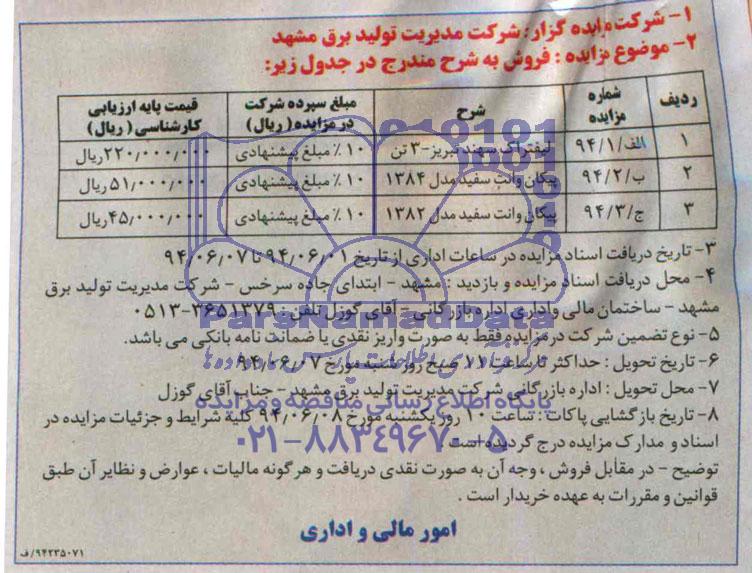 ۱- شرکت مزایده گزار: شرکت مدیریت تولید برق مشهد
۲- موضوع مزایده : فروش به شرح مندرج در جدول زیر:
ردیف شماره مزایده شرح مبلغ سپرده شرکت در مزایده ( ریال) قیمت پایه ارزیابی کارشناسی ( ریال)
۱ الف/۹۴/۱ لیفتراک سهند تبریز-۳ تن ۱۰٪ مبلغ پیشنهادی ۲۲۰٫۰۰۰٫۰۰۰ریال
۲ ب/۹۴/۲ پیکان وانت سفید مدل ۱۳۸۴ ۱۰٪ مبلغ پیشنهادی ۵۱٫۰۰۰٫۰۰۰ریال
۳ ج/۹۴/۳ پیکان وانت سفید مدل ۱۳۸۲ ۱۰٪ مبلغ پیشنهادی ۴۵٫۰۰۰٫۰۰۰ریال
۳- تاریخ دریافت اسناد مزایده در ساعات اداری از تاریخ ۹۴٫۰۶٫۰۱ تا ۹۴٫۰۶٫۰۷
۴- محل دریافت اسناد مزایده و بازدید : مشهد - ابتدای جاده سرخس - شرکت مدیریت تولید برق
مشهد - ساختمان مالی و اداری اداره بازرگانی - آقای گوزل تلفن : ۳۶۵۱۳۷۹-۰۵۱۳
ParsNamadData
۵- نوع تضمین شرکت درمزایده فقط به صورت واریز نقدی یا ضمانت نامه بانکی می باشد.
۶- تاریخ تحویل : حداکثر تا ساعت ۱۱ صبح روز شنبه مورخ ۹۴٫۰۶٫۰۷
۷- محل تحویل : اداره بازرگانی شرکت مدیریت تولید برق مشهد - جناب آقای گوزل
پایگاه اطلاع رسانی مناقصه و مزایده
۸- تاریخ بازگشایی پاکات : ساعت ۱۰ روز یکشنبه مورخ ۹۴٫۰۶٫۰۸ کلیه شرایط و جزئیات مزایده در
اسناد و مدارک مزایده درج گردیده است
۰۲۱-۸۸۳۴۹۶۷۰-۵
توضیح - در مقابل فروش ، وجه آن به صورت نقدی دریافت و هر گونه مالیات ، عوارض و نظایر آن طبق
قوانین و مقررات به عهده خریدار است .
امور مالی و اداری
۹۴۲۳۵۰۷۱/ف